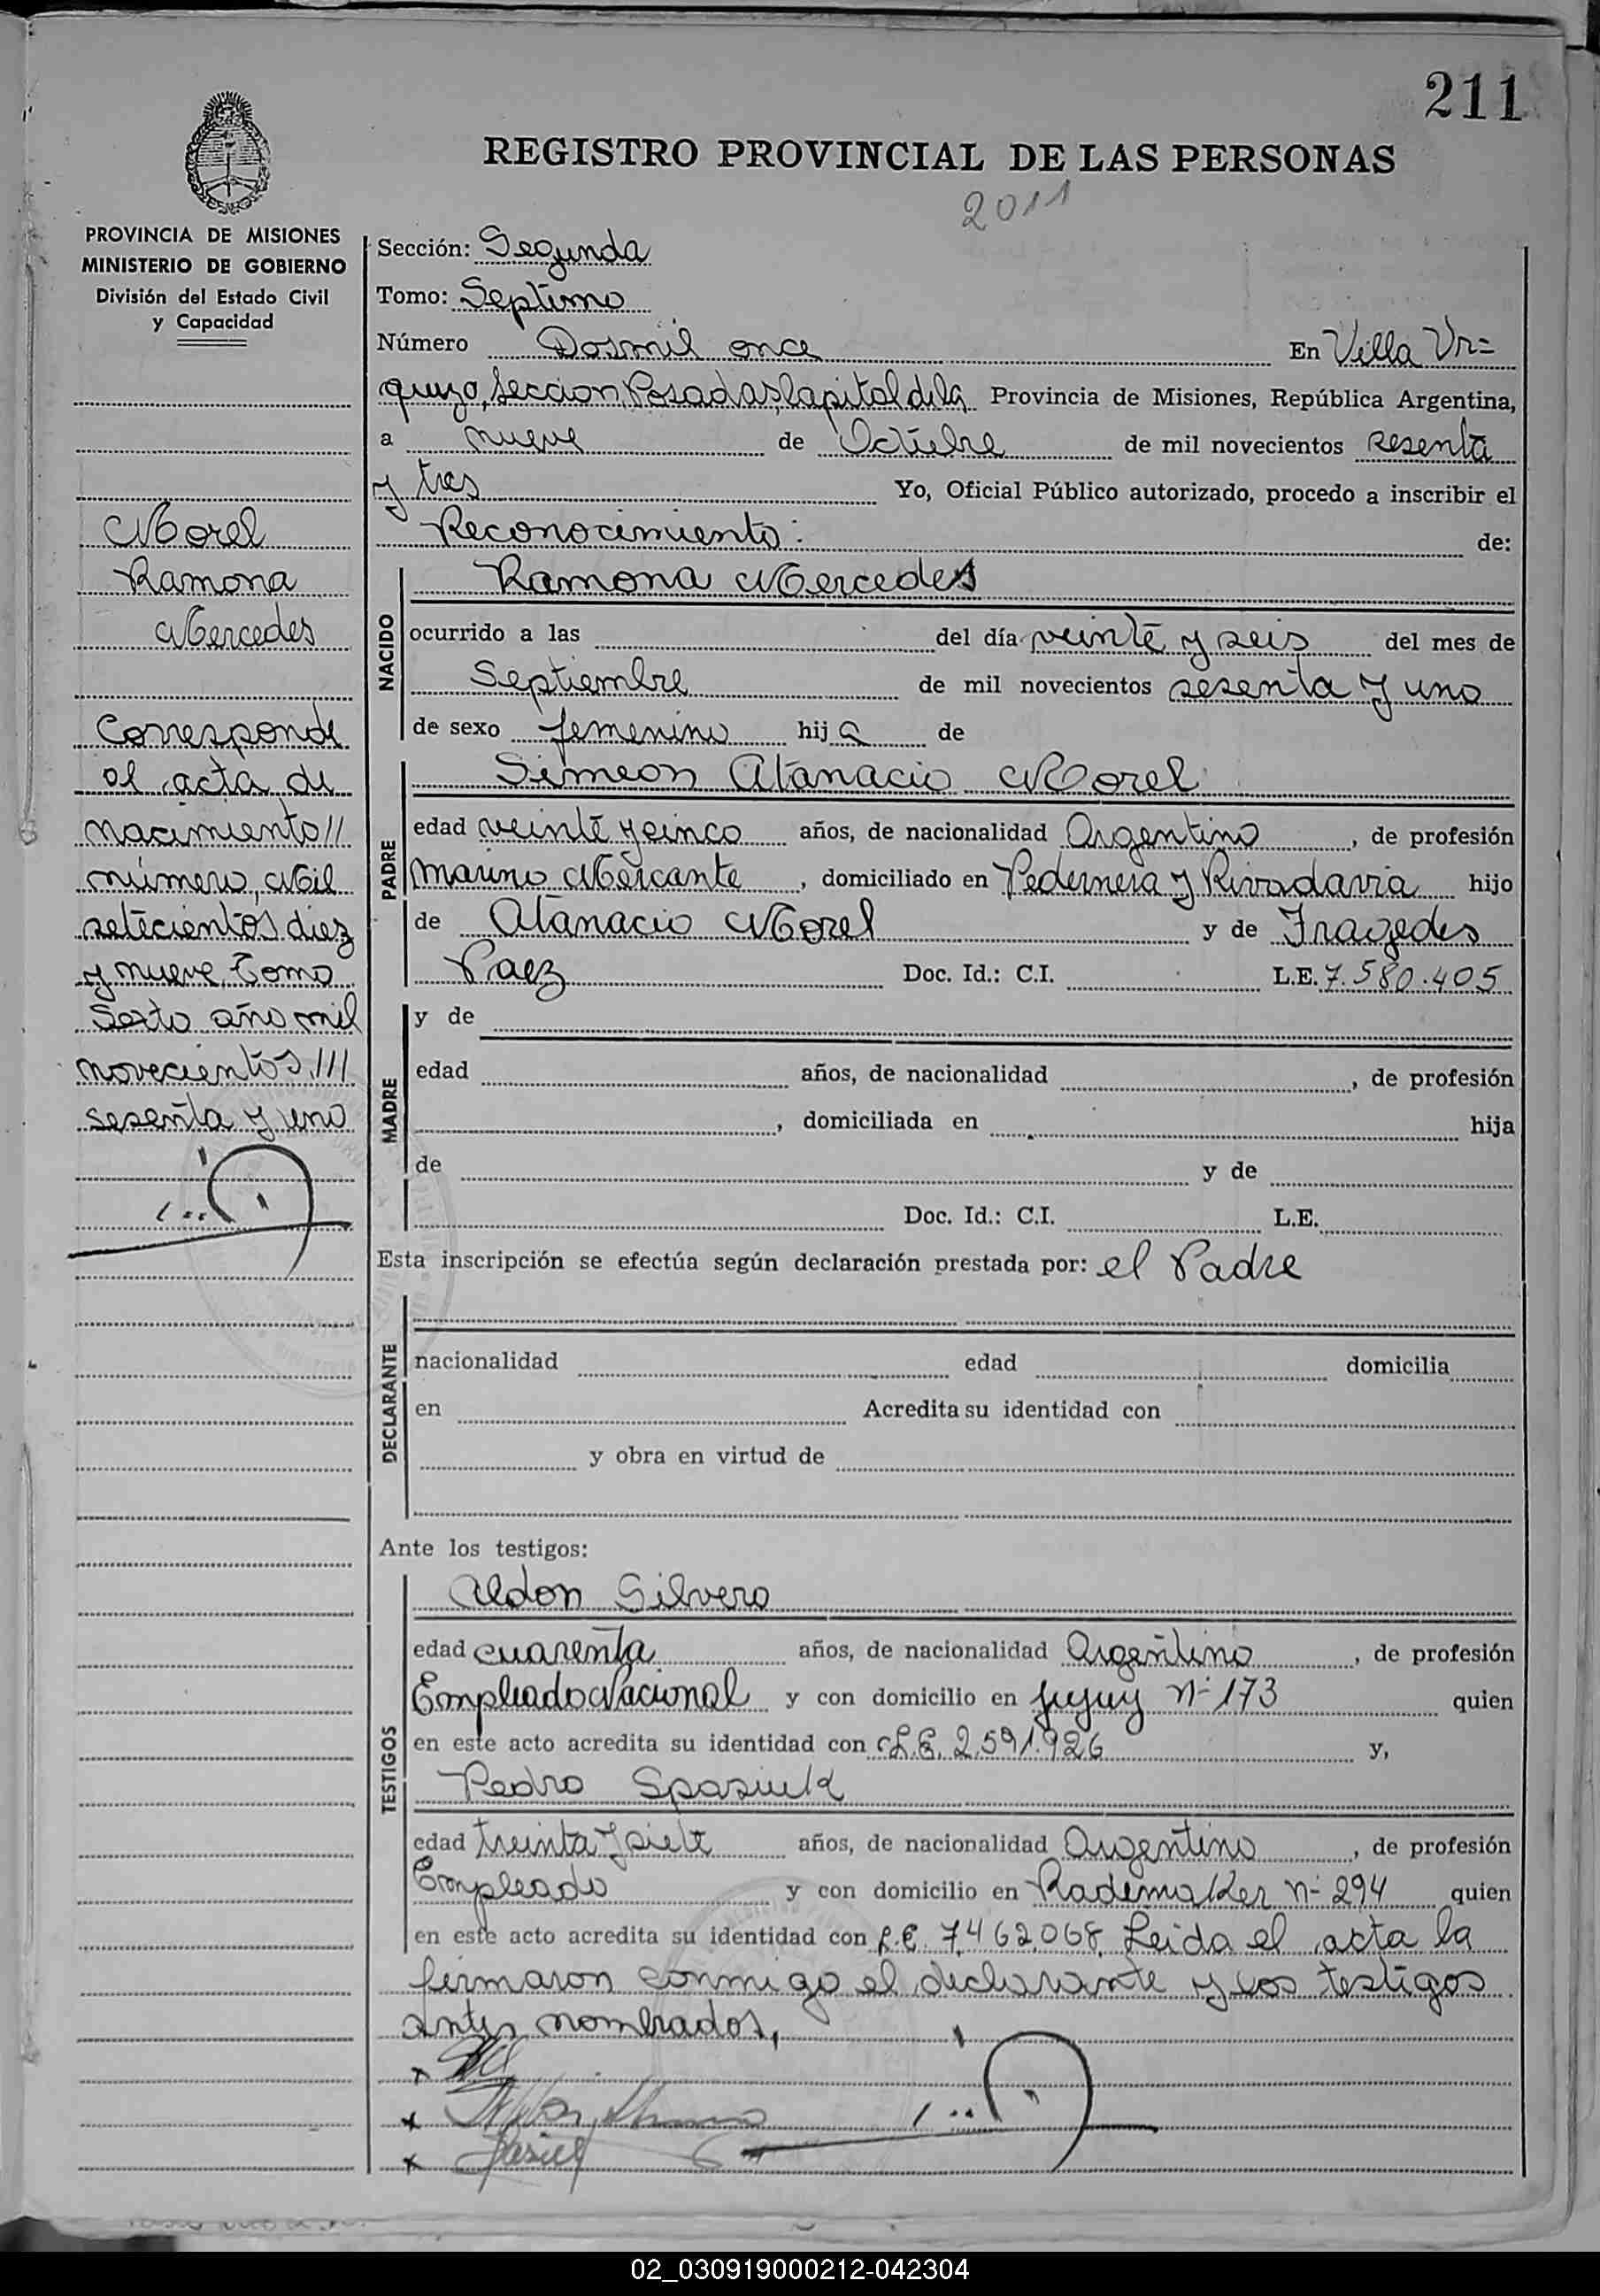 211
REGISTRO PROVINCIAL DE LAS PERSONAS
2011
PROVINCIA DE MISIONES
MINISTERIO DE GOBIERNO
División del Estado Civil
y Capacidad
Morel
Ramona
Mercedes
Corresponde
al acta de
nacimiento //
número, Mil
setecientos diez
y nueve Tomo
Sexto año mil
novecientos ///
sesenta y uno
Sección: Segunda
Tomo: Septimo
Número Dosmil once En Villa Ur=
quiza, Seccion, Posadas, Capital de la Provincia de Misiones, República Argentina,
a nueve de Octubre de mil novecientos sesenta
y tres Yo, Oficial Público autorizado, procedo a inscribir el
Reconocimiento: de:
NACIDO
Ramona Mercedes
ocurrido a las del día veinte y seis del mes de
Septiembre de mil novecientos sesenta y uno
de sexo femenino hij a de
PADRE
Simeon Atanacio Morel
edad veinte y cinco años, de nacionalidad Argentino, de profesión
Marino Mercante, domiciliado en Pedernera y Rivadavia hijo
de Atanacio Morel y de
Paez Doc. Id.: C.I. L.E. 7.580.405
MADRE
y de
edad años, de nacionalidad , de profesión
, domiciliada en hija
de y de
Doc. Id.: C.I. L.E.
Esta inscripción se efectúa según declaración prestada por: el Padre
DECLARANTE
nacionalidad edad domicilia
en Acredita su identidad con
y obra en virtud de
Ante los testigos:
TESTIGOS
Aldon Silvero
edad cuarenta años, de nacionalidad Argentino, de profesión
Empleado Nacional y con domicilio en Jujuy Nº 173 quien
en este acto acredita su identidad con L.E. 2.591.926 y,
Pedro Spasiuk
edad treinta y siete años, de nacionalidad Argentino, de profesión
Empleado y con domicilio en Rademaker nº 294 quien
en este acto acredita su identidad con L.E. 7.462.068. Leida el acta la
firmaron conmigo el declarante y los testigos
antes nombrados,
02_030919000212-042304